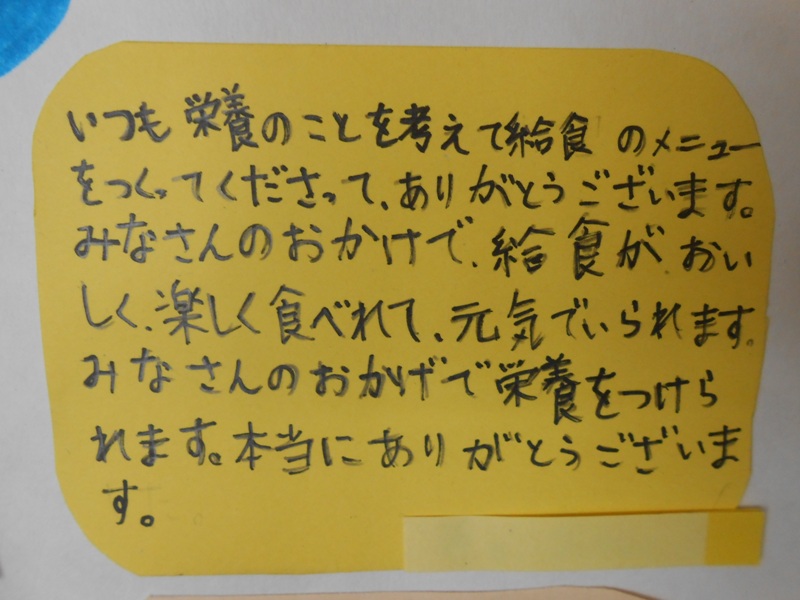 いつも栄養のことを考えて給食のメニュー
をつくってくださって、ありがとうございます。
みなさんのおかけで、給食が、おい
しく、楽しく食べれて、元気でいられます。
みなさんのおかげで栄養をつけら
れます。本当にありがとうございま
す。